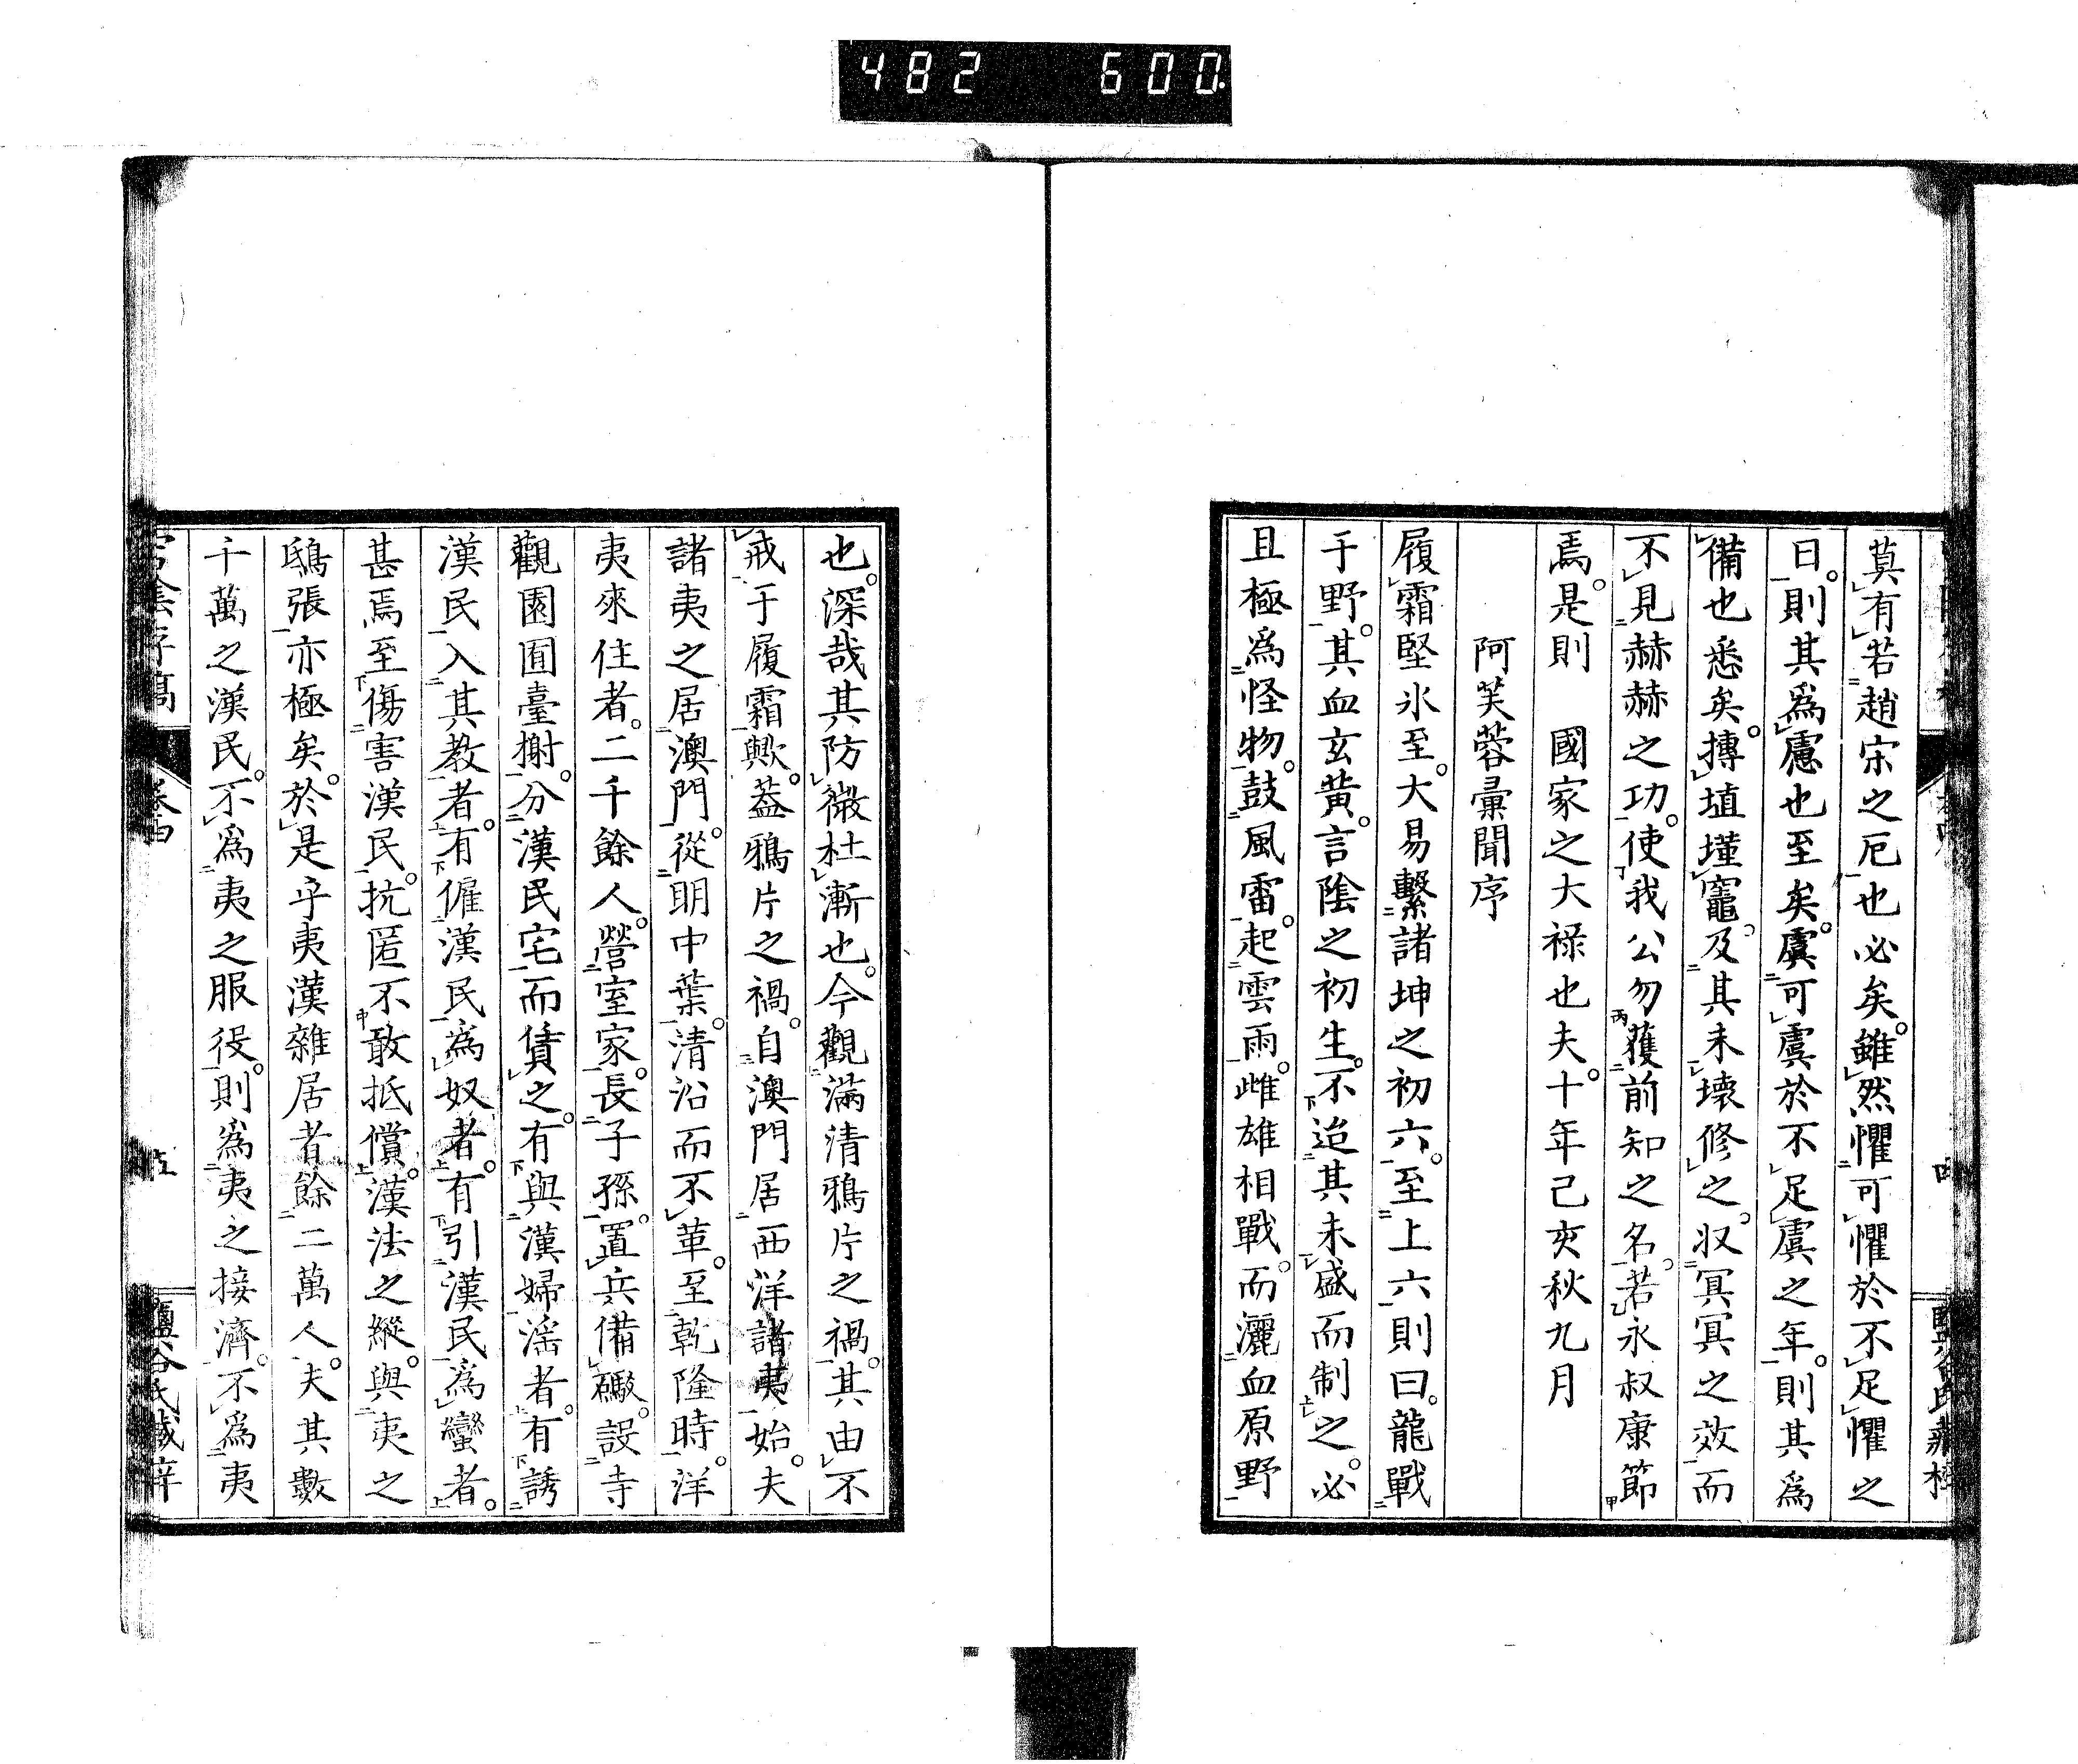 482 600.
莫有若趙宋之厄也必矣。雖然懼可懼於不足懼之
日。則其爲慮也至矣。虞可虞於不足虞之年。則其爲
備也悉矣。摶埴墐竈。及其未壊修之。収冥冥之效而
不見赫赫之功。使我公勿獲前知之名。若永叔康節
焉。是則 國家之大祿也夫。十年己亥秋九月
阿芙蓉彙聞序
履霜堅氷至。大易繫諸坤之初六。至上六則曰。龍戰
于野。其血玄黄。言陰之初生。不迨其未盛而制之。必
且極爲怪物。鼓風雷。起雲雨。雌雄相戰。而灑血原野
也。深哉其防微杜漸也。今觀滿清鴉片之禍。其由不
戒于履霜歟。葢鴉片之禍。自澳門居西洋諸夷始。夫
諸夷之居澳門。從明中葉。清沿而不革。至乾隆時。洋
夷來住者。二千餘人。營室家。長子孫。置兵備礮。設寺
觀園囿臺榭。分漢民宅而賃之。有與漢婦滛者。有誘
漢民入其教者。有僱漢民爲奴者。有引漢民爲蠻者。
甚焉至傷害漢民。抗匿不敢抵償。漢法之縱。與夷之
鴟張亦極矣。於是乎夷漢雜居者餘二萬人。夫其數
千萬之漢民。不爲夷之服役。則爲夷之接濟。不爲夷
宕陰存稿 卷四 五 鹽谷氏藏梓